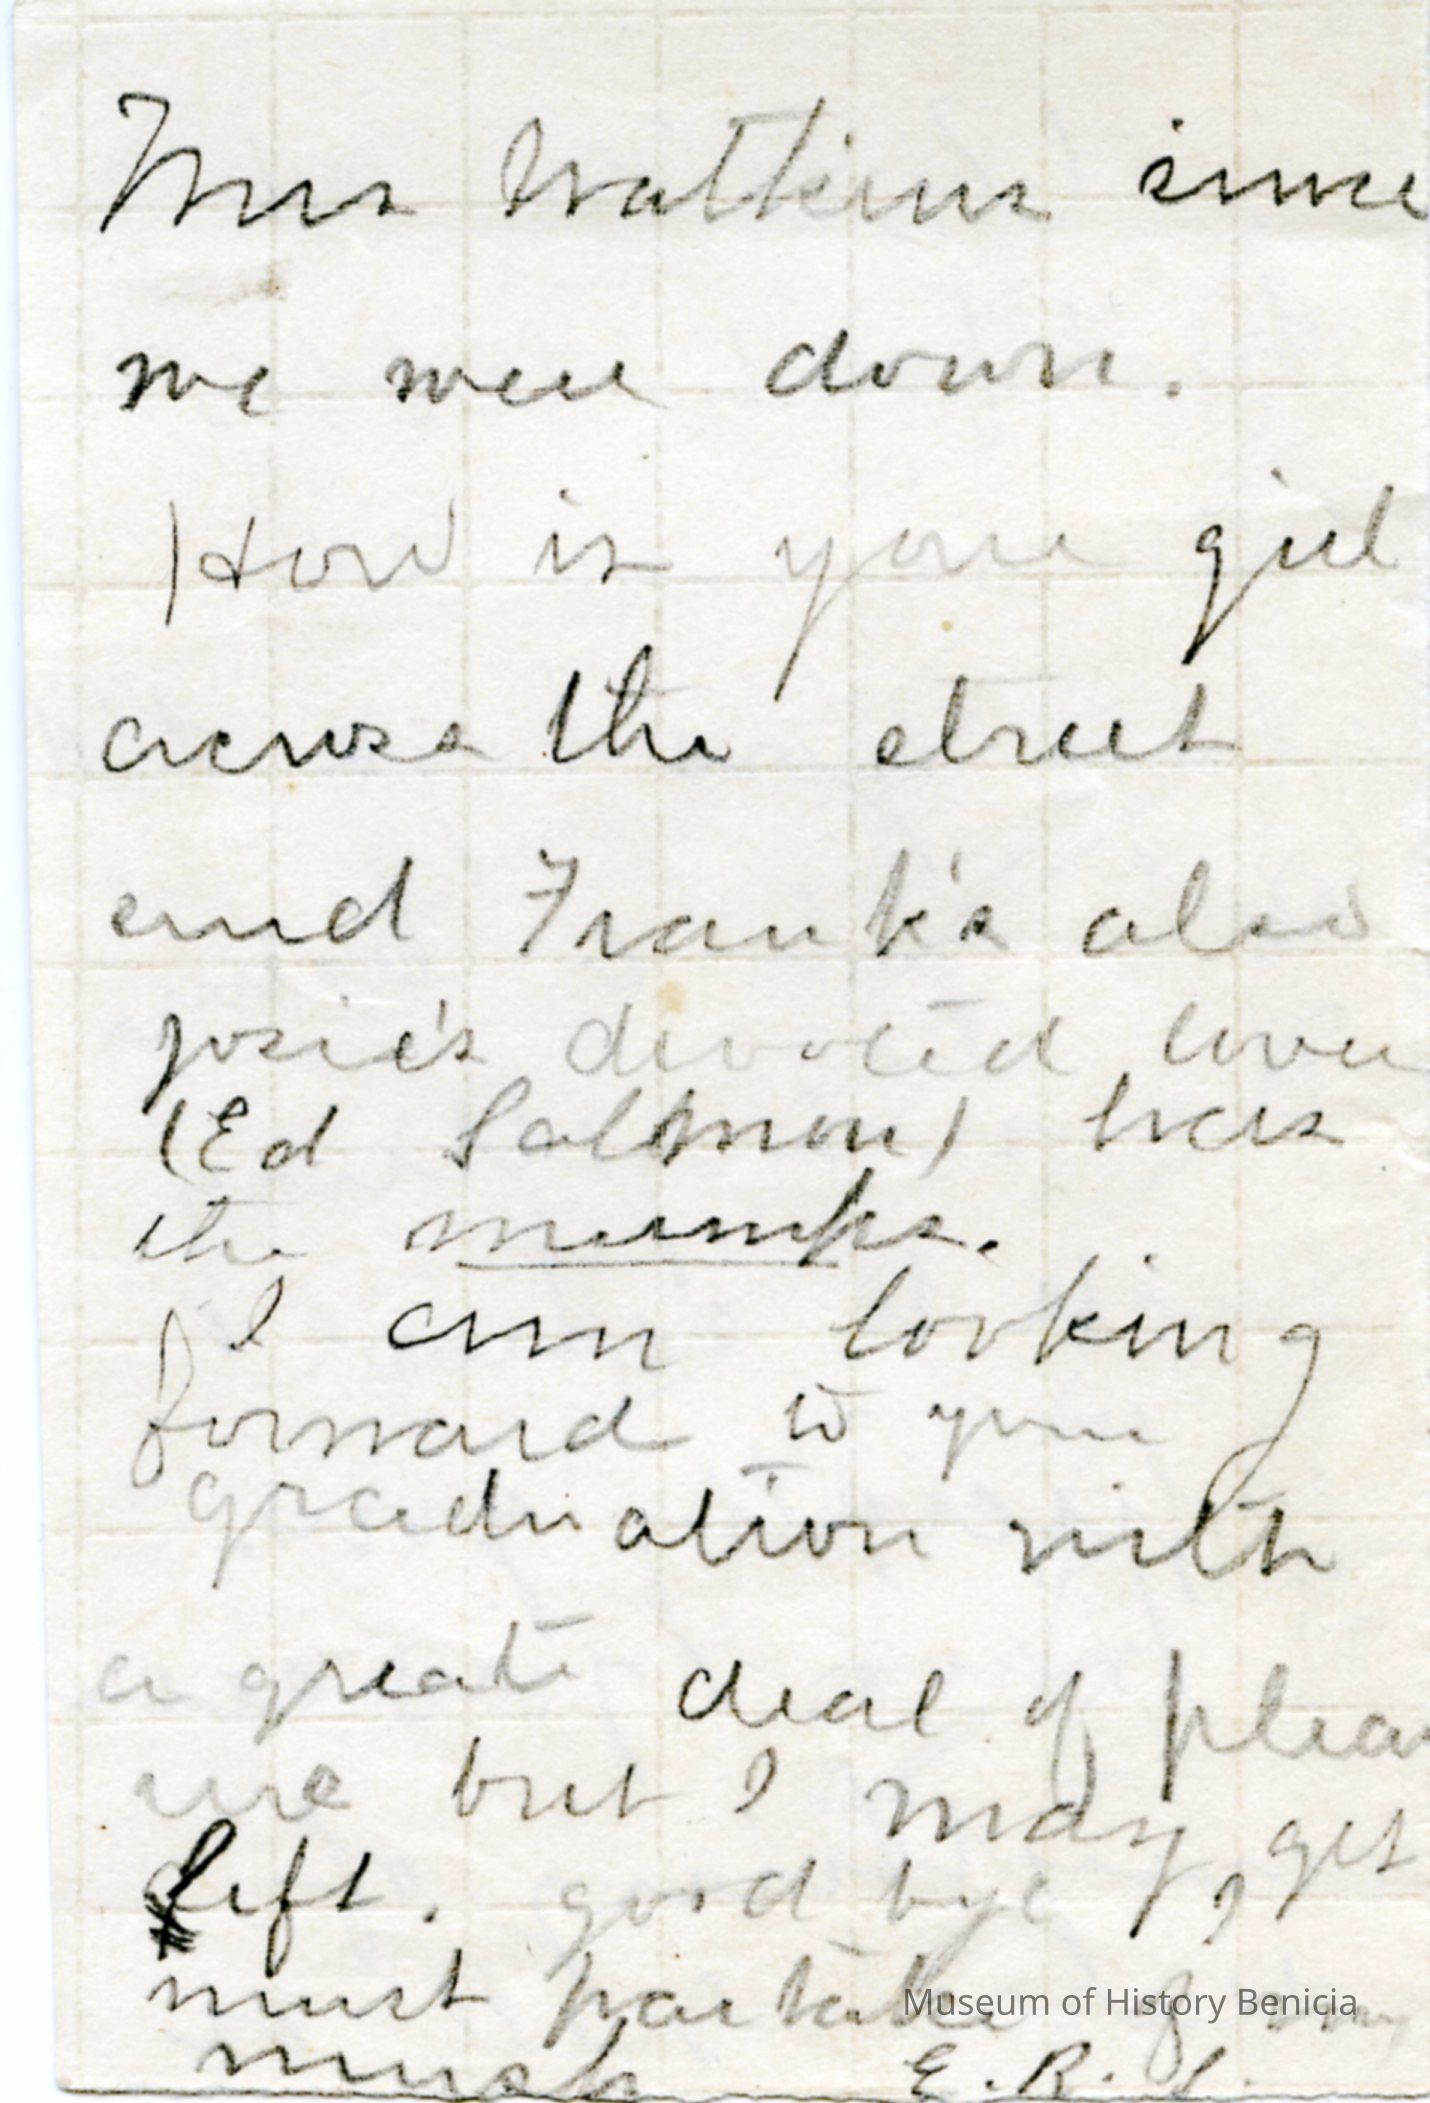 Mrs Watkins since
we were down.
How is your girl
across the street
and Frank's also
Josie's devoted lover
(Ed Salmon) has
the mumps.
I am looking
forward to your
graduation with
a great deal of pleas
ure but I may get
left. good bye, I
must partake of my
mush E. R.
Museum of History Benicia